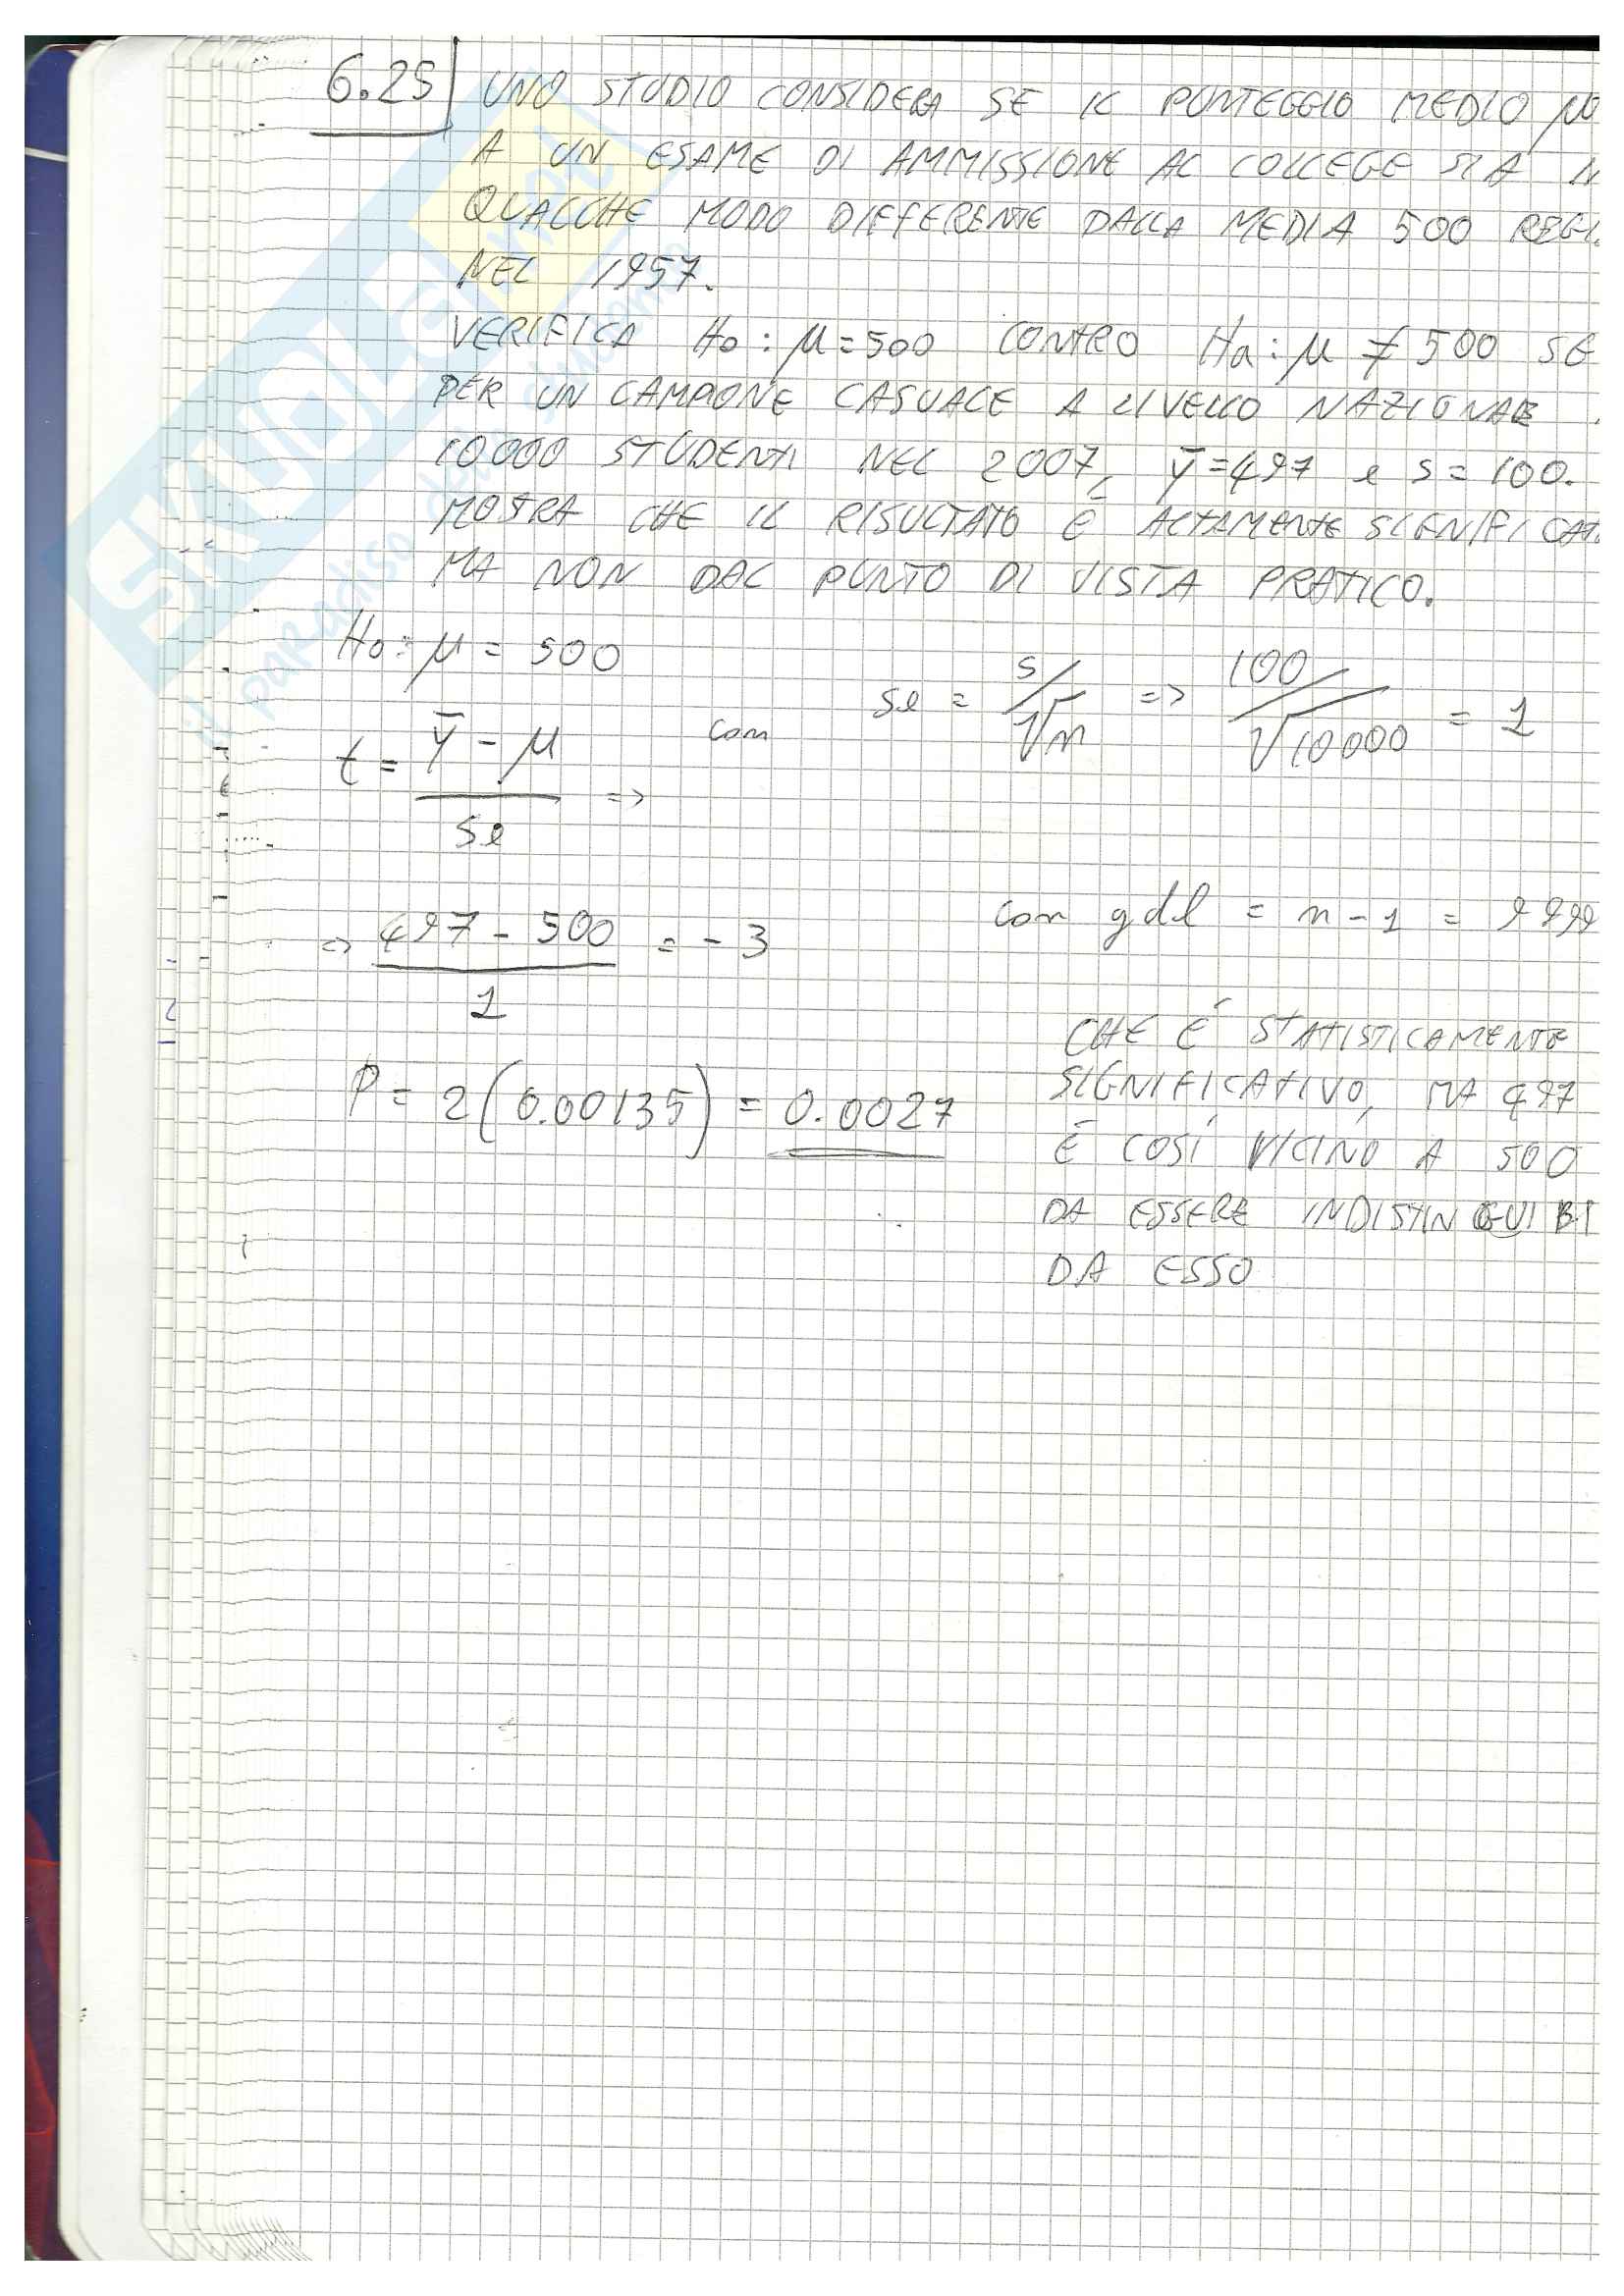 6.25 UNO STUDIO CONSIDERA SE IL PUNTEGGIO MEDIO μ
A UN ESAME DI AMMISSIONE AL COLLEGE SIA
QUALCHE MODO DIFFERENTE DALLA MEDIA 500 REGI
NEL 1957.
VERIFICA H₀: μ = 500 CONTRO Ha: μ ≠ 500 SE
PER UN CAMPIONE CASUALE A LIVELLO NAZIONALE
10000 STUDENTI NEL 2007, ȳ = 497 e s = 100.
MOSTRA CHE IL RISULTATO È ALTAMENTE SIGNIFICAT
MA NON DAL PUNTO DI VISTA PRATICO.
H₀: μ = 500
t = (ȳ - μ) / se => con se = s/√n => 100/√10000 = 1
=> (497 - 500) / 1 = -3 con gdl = n - 1 = 9999
P = 2(0.00135) = 0.0027
CHE È STATISTICAMENTE
SIGNIFICATIVO, MA 497
È COSÌ VICINO A 500
DA ESSERE INDISTINGUIBI
DA ESSO
SKUOLA.net
il paradiso dello studente